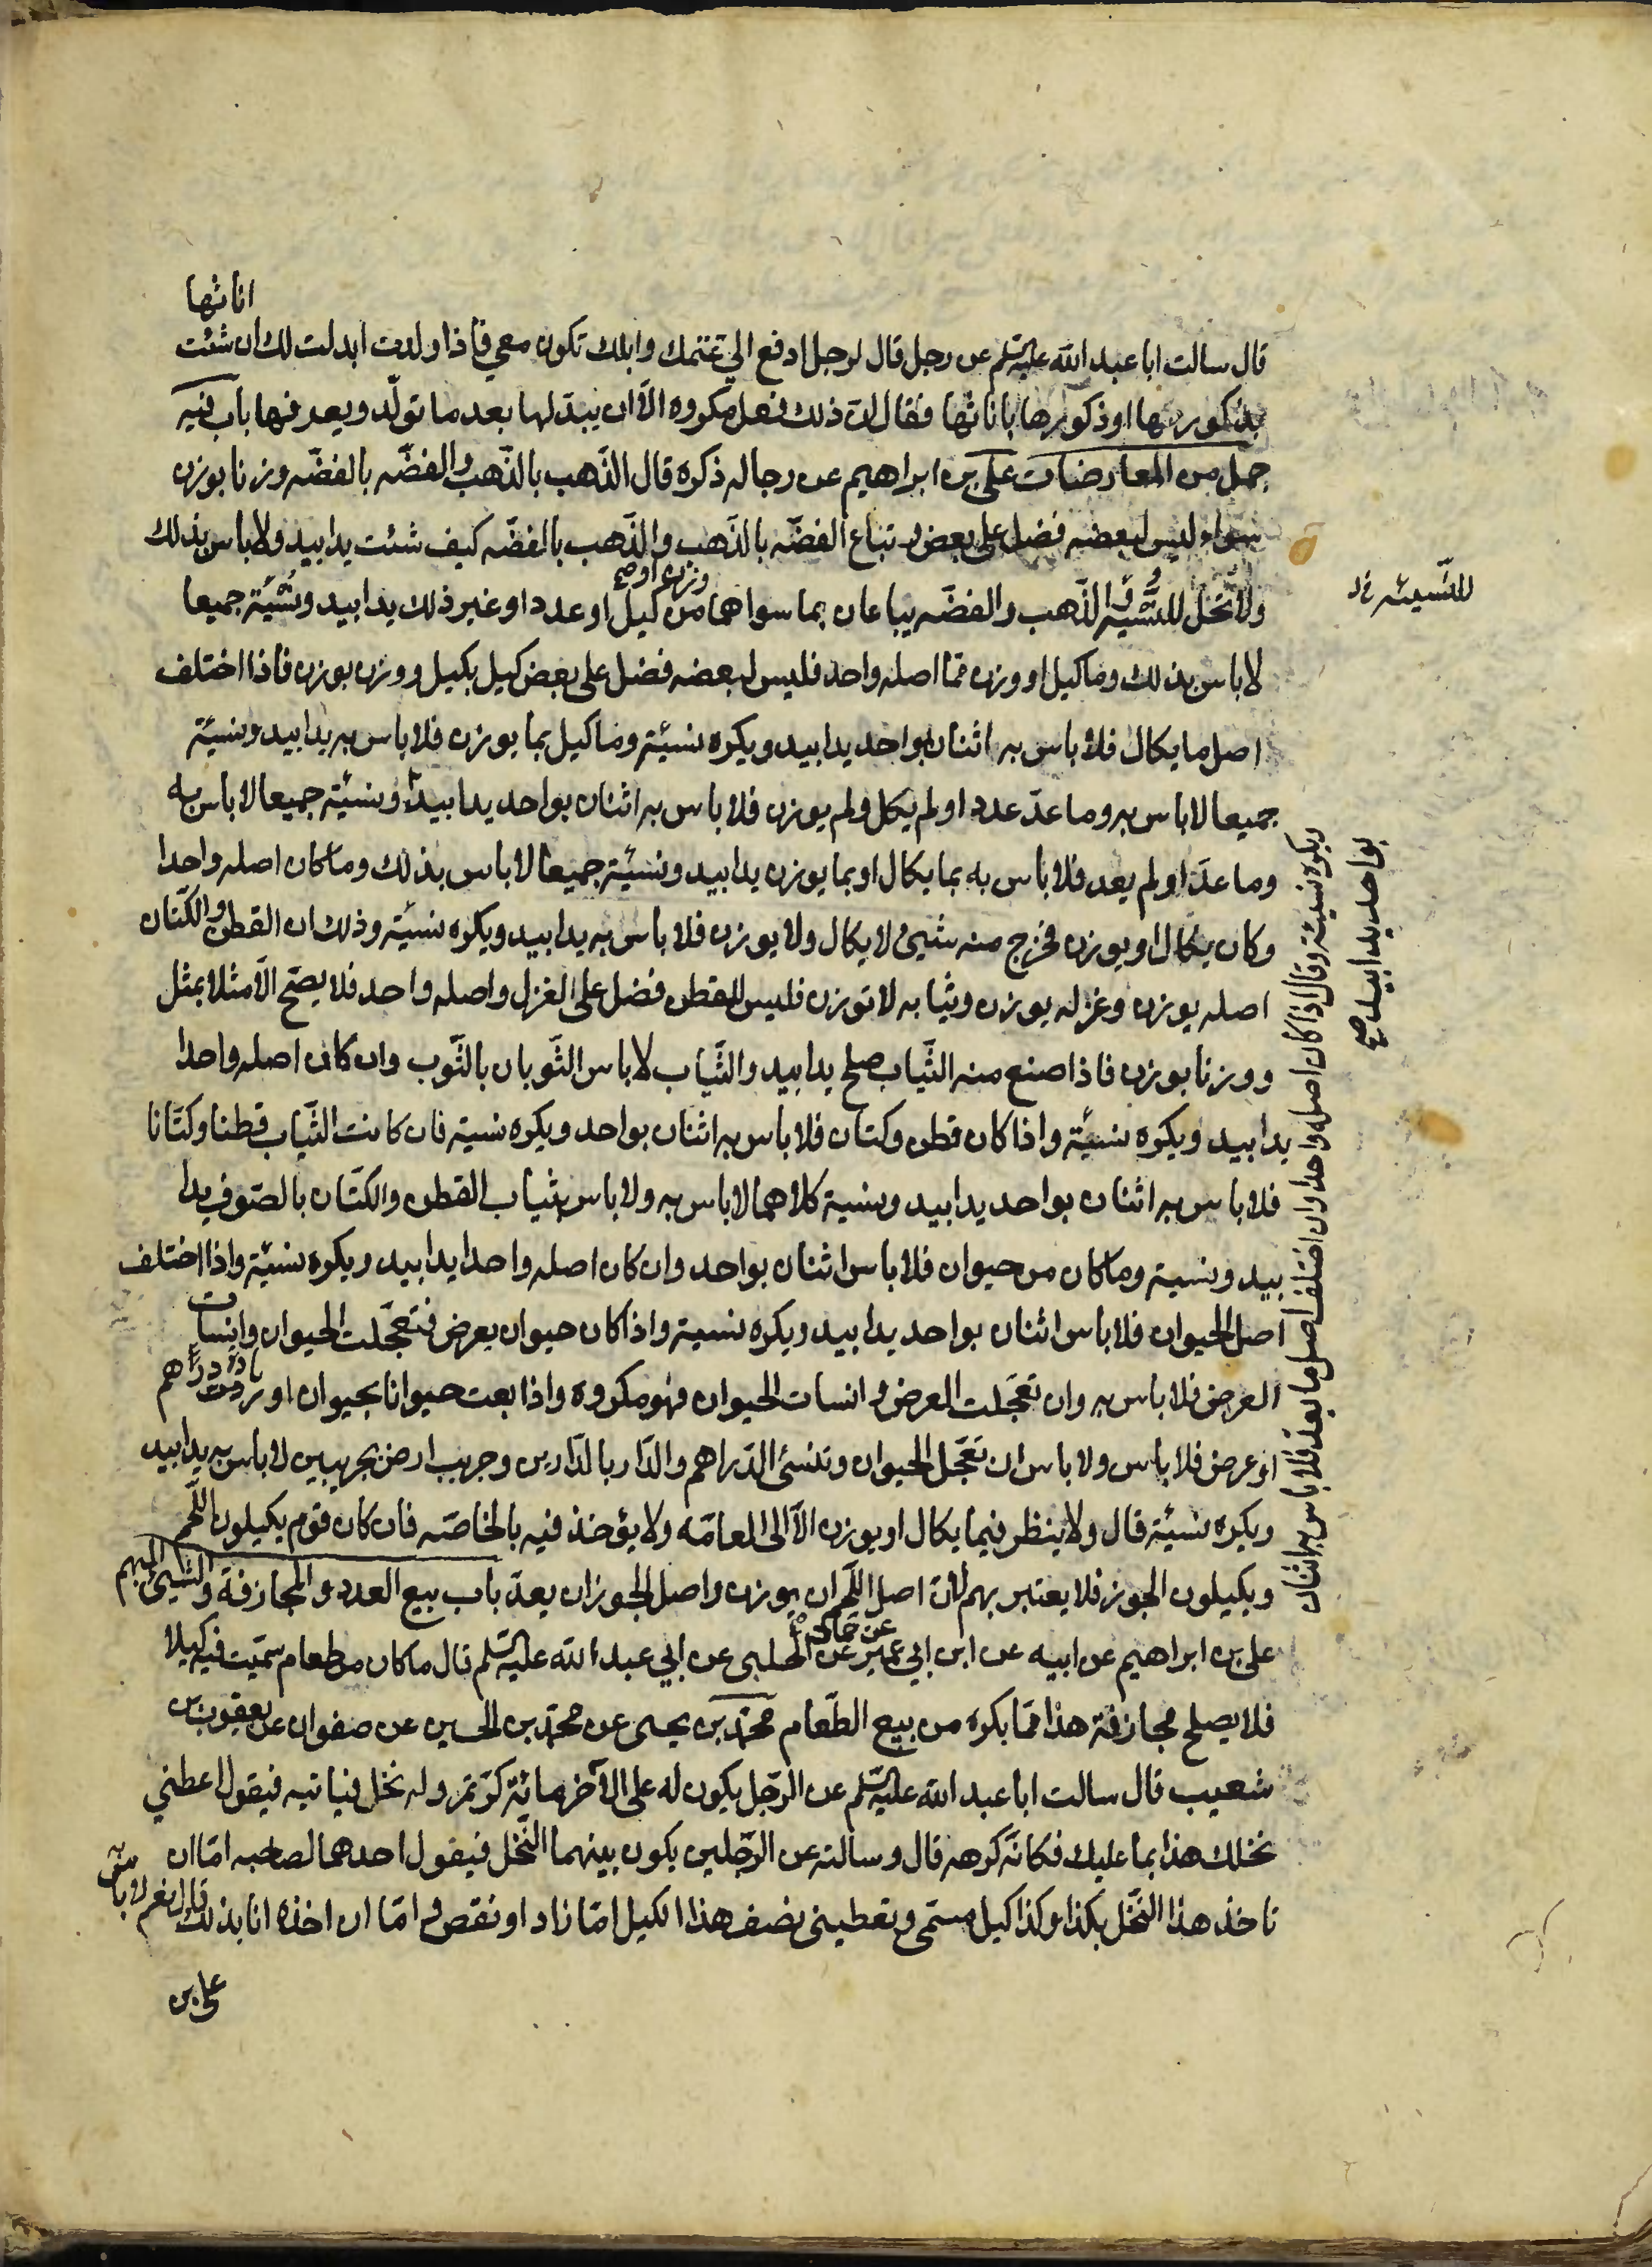 اناثها
قال سالت ابا عبد الله عليه السلم عن رجل قال لرجل ادفع الي غنمك وابلك تكون معي فاذا ولدت ابدلت لك ان شئت
بذكورتها او ذكورها باناثها فقال ان ذلك فعل مكروه الا ان يبدلها بعد ما تولد ويعرفها باب فيه
جمل من المعارضات على بن ابراهيم عن رجاله ذكره قال الذهب بالذهب والفضه بالفضه وزنا بوزن
سواء ليس لبعضه فضل على بعض و تباع الفضه بالذهب والذهب بالفضه كيف شئت يدا بيد ولا باس بذلك
ولا تحل للنسية و الذهب والفضه يباعان بما سواهما من وزن او صح كيل او عدد او غير ذلك يدا بيد ونسيئة جميعا
للنسيئه خ د
لا باس بذلك وما كيل او وزن مما اصله واحد فليس لبعضه فضل على بعض كيل بكيل ووزن بوزن فاذا اختلف
اصل ما يكال فلا باس به اثنان بواحد يدا بيد ويكره نسئية وما كيل بما يوزن فلا باس به يدا بيد ونسئية
جميعا لا باس به وما عد عدد او لم يكل ولم يوزن فلا باس به اثنان بواحد يدا بيد ونسئية جميعا لا باس به
وما عد او لم يعد فلا باس به بما يكال او بما يوزن يدا بيد ونسئية جميعا لا باس بذلك وما كان اصله واحدا
وكان يكال او يوزن فخرج منه شيئ لا يكال ولا يوزن فلا باس به يدا بيد ويكره نسئية وذلك ان القطن والكتان
اصله يوزن وغزله يوزن وثيابه لا توزن فليس للقطن فضل على الغزل واصله واحد فلا يصح الا مثلا بمثل
ووزنا بوزن فاذا صنع منه الثياب صلح يدا بيد والثياب لا باس الثوبان بالثوب وان كان اصله واحدا
يدا بيد ويكره نسئية واذا كان قطن وكتان فلا باس به اثنان بواحد ويكره نسية فان كانت الثياب قطنا وكتانا
فلا باس به اثنان بواحد يدا بيد ونسية كلاهما لا باس به ولا باس بثياب القطن والكتان بالصوف يدا
بيد ونسية وما كان من حيوان فلا باس اثنان بواحد وان كان اصله واحدا يدا بيد ويكره نسئية واذا اختلف
اصل الحيوان فلا باس اثنان بواحد يدا بيد ويكره نسية واذا كان حيوان بعرض فتعجلت الحيوان وانسات
العرض فلا باس به وان تعجلت العرض و انسات الحيوان فهو مكروه واذا بعت حيوانا بحيوان او زيادة دراهم
او عرض فلا باس ولا باس ان تعجل الحيوان وتنسئ الدراهم والدار بالدارين وجريب ارض بجريبين لا باس به يدا بيد
ويكره نسئية قال ولا ينظر فيما يكال او يوزن الا الى العامه ولا يؤخذ فيه بالخاصه فان كان قوم يكيلون اللحم
ويكيلون الجوز فلا يعتبر بهم لان اصل اللحم ان يوزن واصل الجوز ان يعد باب بيع العدد و المجازفة والشيئ المبهم
على بن ابراهيم عن ابيه عن ابن ابي عمير عن حماد صح عن الحلبى عن ابي عبد الله عليه السلم قال ما كان من طعام سميت فيه كيلا
فلا يصلح مجازفة هذا مما يكره من بيع الطعام محمد بن يحيى عن محمد بن الحسين عن صفوان عن يعقوب بن
شعيب قال سالت ابا عبد الله عليه السلم عن الرجل يكون له على الآخر مائة كر تمر وله نخل فياتيه فيقول اعطني
نخلك هذا بما عليك فكانه كرهه قال وسالته عن الرجلين يكون بينهما النخل فيقول احدهما لصاحبه اما ان
تاخذ هذا النخل بكذا وكذا كيل مسمى وتعطيني نصف هذا الكيل اما زاد او نقص و اما ان اخذه انا بذلك قال نعم لا باس به
على بن
ويكره نسيئة وقال اذا كان اصله واحدا وان اختلف اصل ما يعد فلا باس به اثنان
بواحد يدا بيد صح